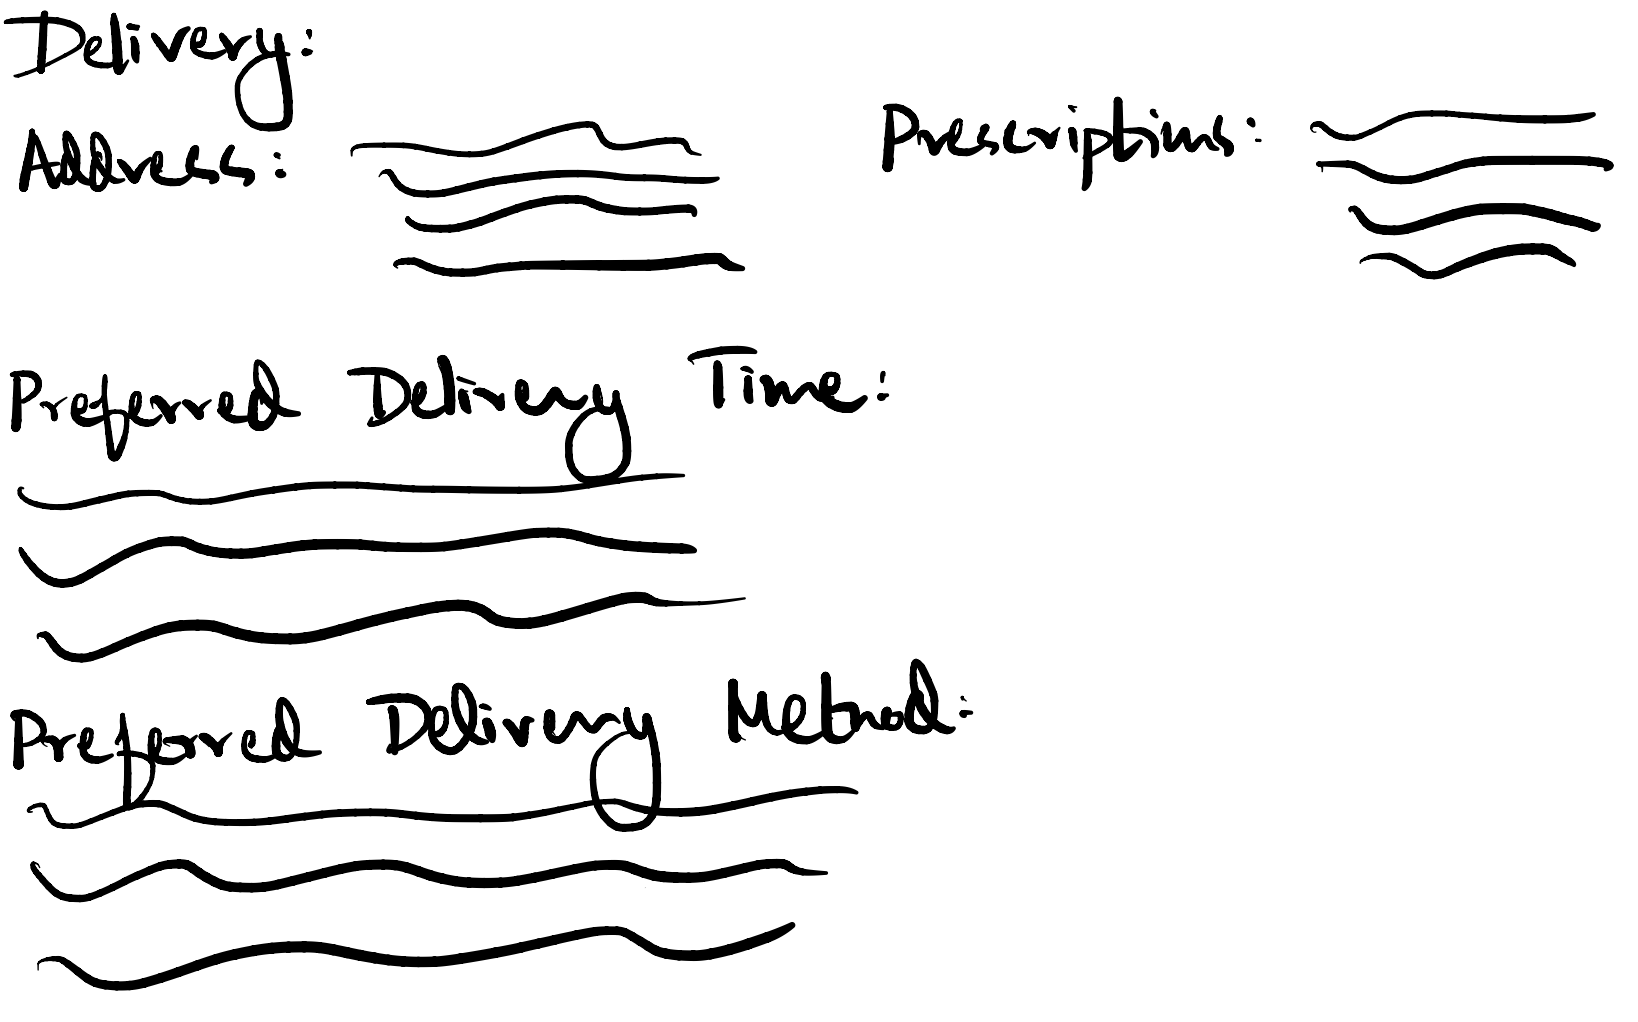 Delivery:
Address:
Prescriptions:
Preferred Delivery Time:
Preferred Delivery Method: